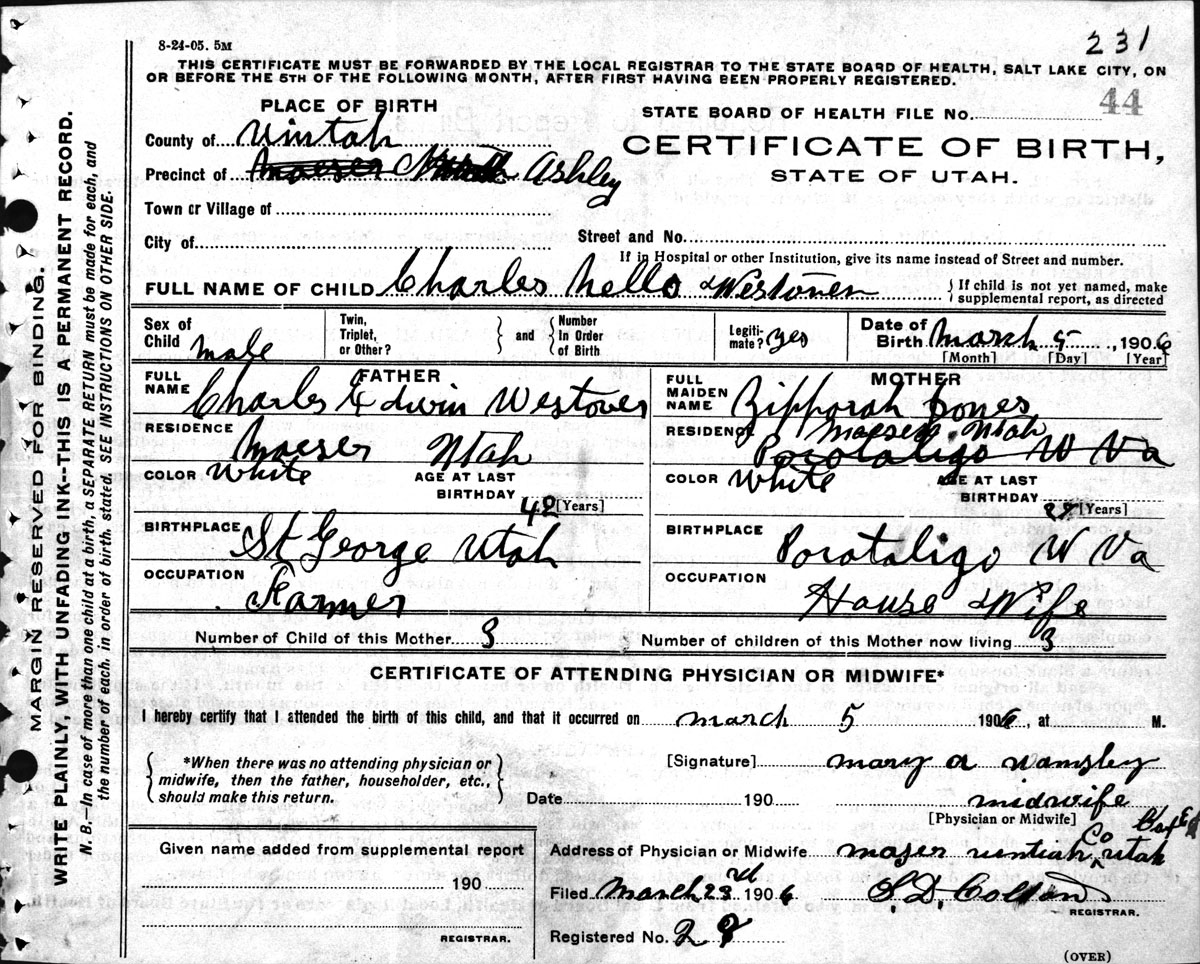 231
8-24-05. 5M
THIS CERTIFICATE MUST BE FORWARDED BY THE LOCAL REGISTRAR TO THE STATE BOARD OF HEALTH, SALT LAKE CITY, ON
OR BEFORE THE 5TH OF THE FOLLOWING MONTH, AFTER FIRST HAVING BEEN PROPERLY REGISTERED.
PLACE OF BIRTH
STATE BOARD OF HEALTH FILE No. 44
County of Uintah
CERTIFICATE OF BIRTH,
STATE OF UTAH.
Precinct of Maeser Ashley
Town or Village of
City of
Street and No.
If in Hospital or other Institution, give its name instead of Street and number.
FULL NAME OF CHILD Charles Nello Westover
If child is not yet named, make
supplemental report, as directed
Sex of Child male
Twin, Triplet, or Other?
and
Number In Order of Birth
Legiti-mate? yes
Date of Birth March 5, 1906
[Month] [Day] [Year]
FATHER
FULL NAME Charles Edwin Westover
RESIDENCE Maeser Utah
COLOR White
AGE AT LAST BIRTHDAY [Years]
BIRTHPLACE St George Utah
OCCUPATION Farmer
MOTHER
FULL MAIDEN NAME Zipporah Jones
RESIDENCE Maeser Utah
Pocotaligo W Va
COLOR White
AGE AT LAST BIRTHDAY [Years]
BIRTHPLACE Pocotaligo W Va
OCCUPATION House Wife
Number of Child of this Mother 3
Number of children of this Mother now living 3
CERTIFICATE OF ATTENDING PHYSICIAN OR MIDWIFE*
I hereby certify that I attended the birth of this child, and that it occurred on march 5 1906, at M.
*When there was no attending physician or
midwife, then the father, householder, etc.,
should make this return.
[Signature] mary a wamsley
Date 190
midwife
[Physician or Midwife]
Given name added from supplemental report
190
REGISTRAR.
Address of Physician or Midwife maser Co utah
Filed March 23rd 1906 S.D. Colton
REGISTRAR.
Registered No.
(OVER)
MARGIN RESERVED FOR BINDING.
WRITE PLAINLY, WITH UNFADING INK--THIS IS A PERMANENT RECORD.
N. B.—In case of more than one child at a birth, a SEPARATE RETURN must be made for each, and
the number of each, in order of birth, stated. SEE INSTRUCTIONS ON OTHER SIDE.